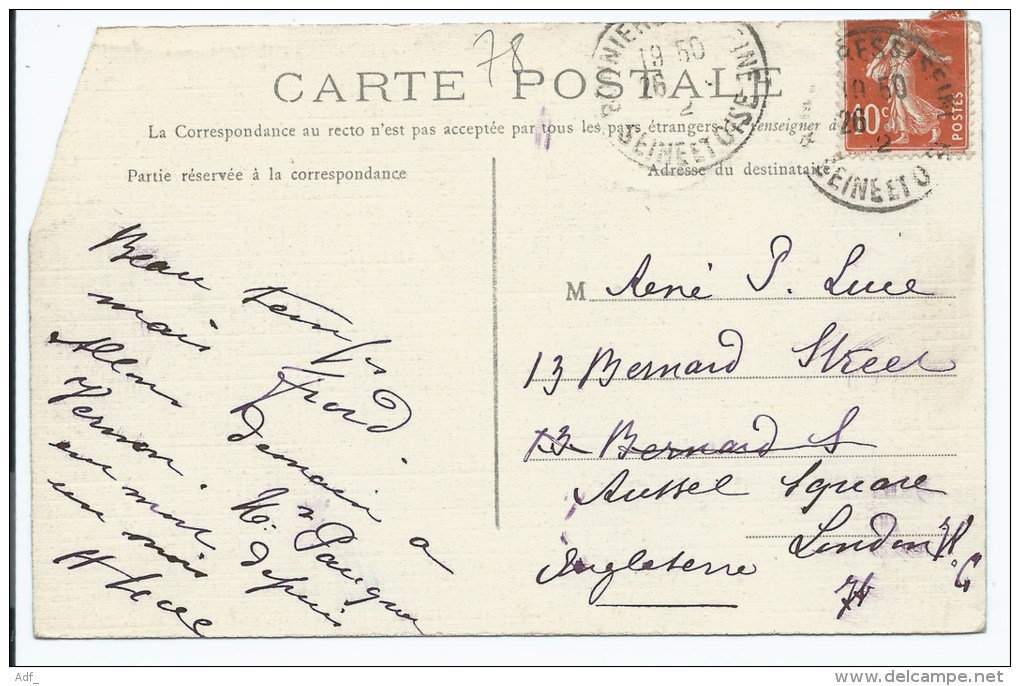 78
CARTE POSTALE
La Correspondance au recto n'est pas acceptée par tous les pays étrangers
Partie réservée à la correspondance
Adresse du destinataire
19 50
26
2
SEINE ET OISE
19 50
26
2
SEINE ET O
10c
POSTES
Beau temps
mais froid.
Allons demain a
Vernon.
depuis
un mois
M René P. Luce
13 Bernard Street
13 Bernard S
Russel Square
London W.C
Angleterre
Adf_
www.delcampe.net